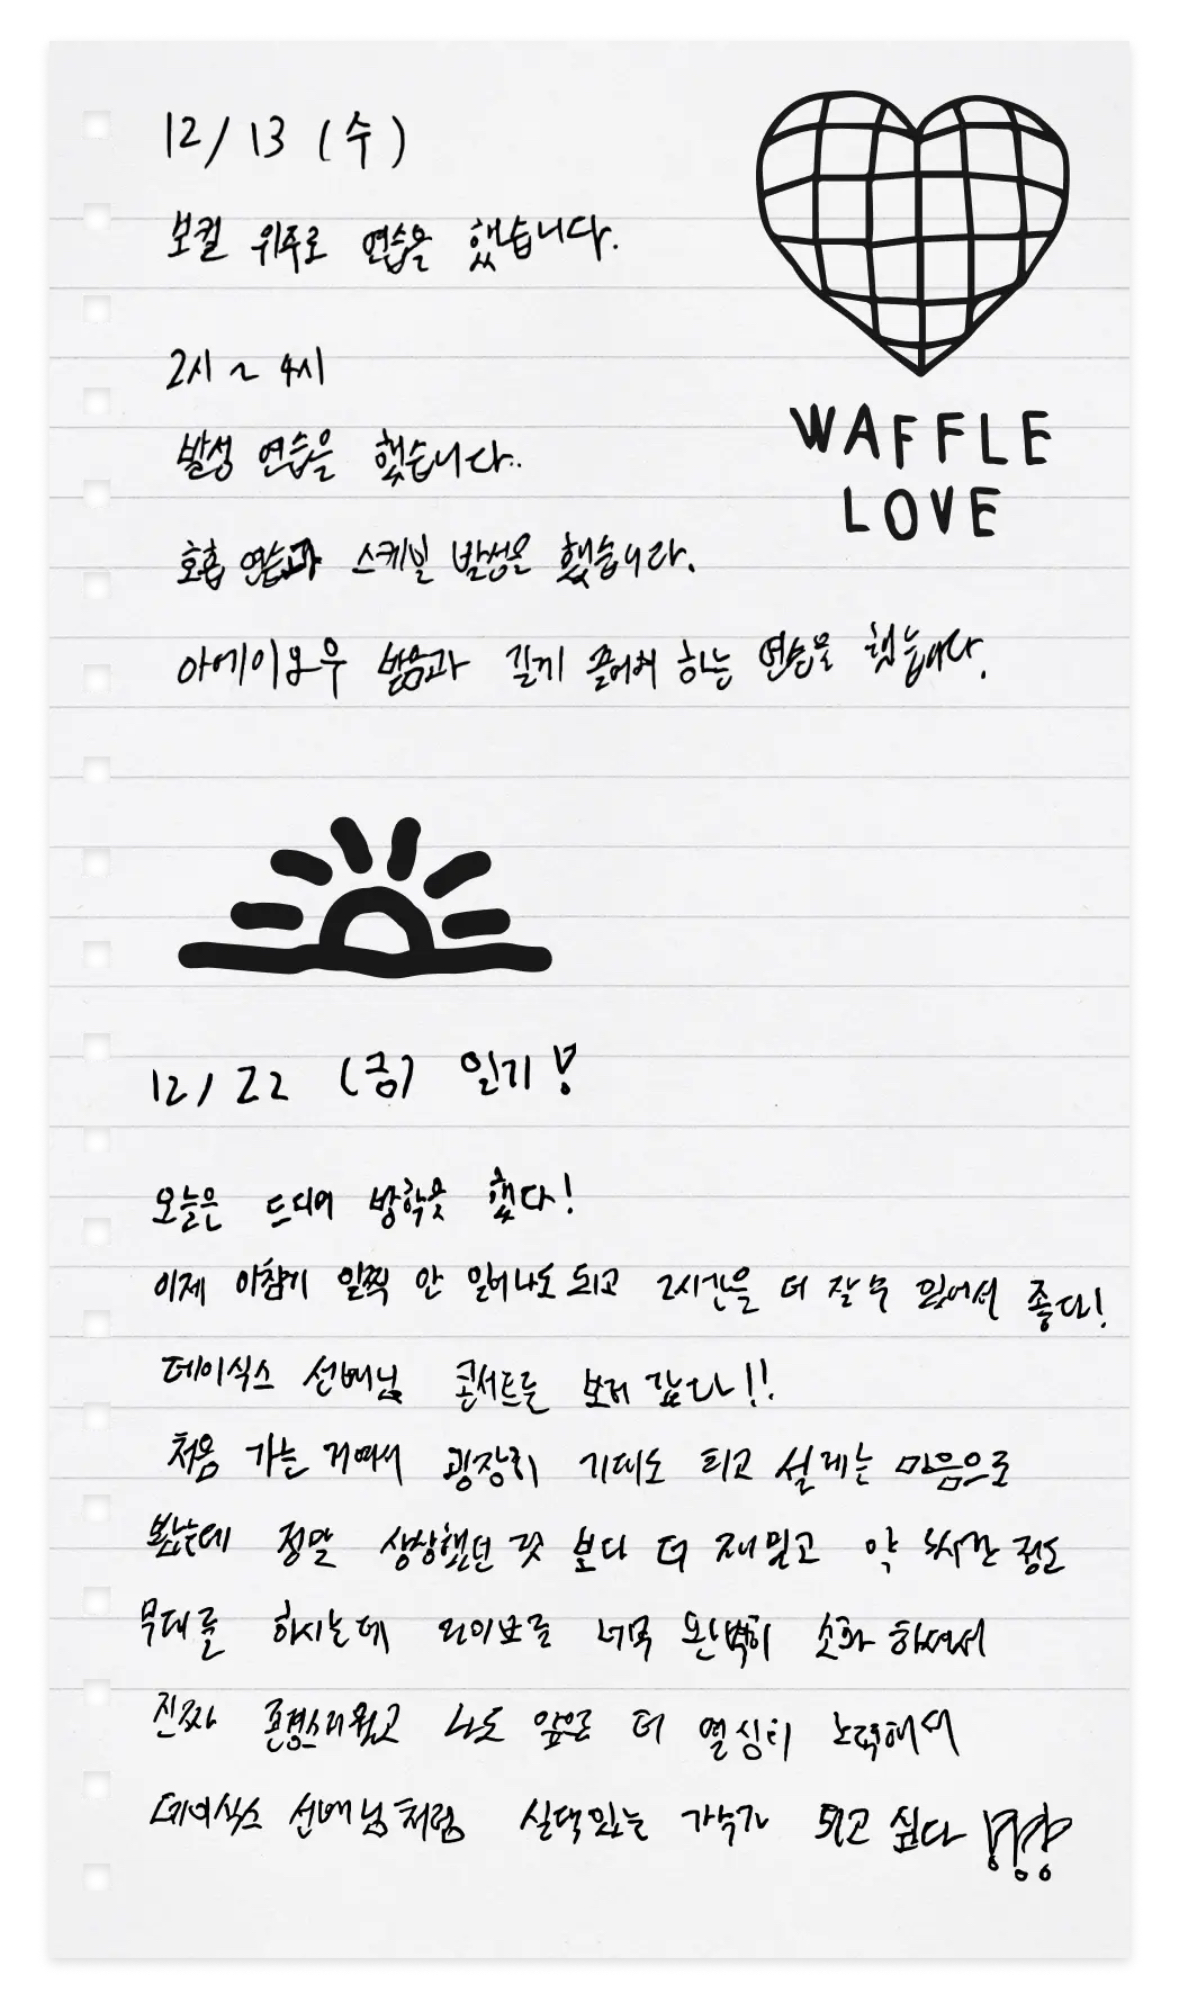 12/13 (수)
보컬 위주로 연습을 했습니다.
2시 ~ 4시
발성 연습을 했습니다..
호흡 연습과 스케일 발성을 했습니다.
아에이오우 발음과 길게 끌어서 하는 연습을 했습니다.
WAFFLE
LOVE
12/22 (금) 일기!
오늘은 드디어 방학을 했다!
이제 아침에 일찍 안 일어나도 되고 2시간을 더 잘 수 있어서 좋다!
데이식스 선배님 콘서트를 보러 갔다!!
처음 가는 거여서 굉장히 기대도 되고 설레는 마음으로
봤는데 정말 상상했던 것 보다 더 재밌고 약 3시간 정도
무대를 하시는데 라이브를 너무 완벽히 소화 하셔서
진짜 존경스러웠고 나도 앞으로 더 열심히 노력해서
데이식스 선배님처럼 실력있는 가수가 되고 싶다!!!